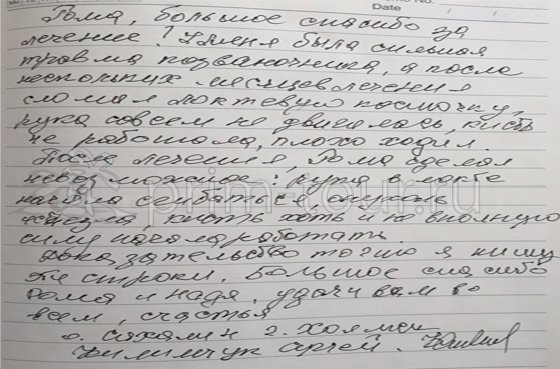 Date
Рома, большое спасибо за
лечение! У меня была сильная
травма позваночника, а после
нескольких месяцев лечения
сломал локтевую косточку,
рука совсем не двигалась, кисть
не работала, плохо ходил.
После лечения, Рома сделал
невозможное: рука в локте
начала сгибаться
исчезла, кисть хоть и не вполную
силу начала работать.
Доказательство точно я пишу
эти строки. Большое спасибо
Рома и Надя, удачи вам во
всем, счастья
о. Сахалин г. Холмск
Сергей.
prim-tour.ru